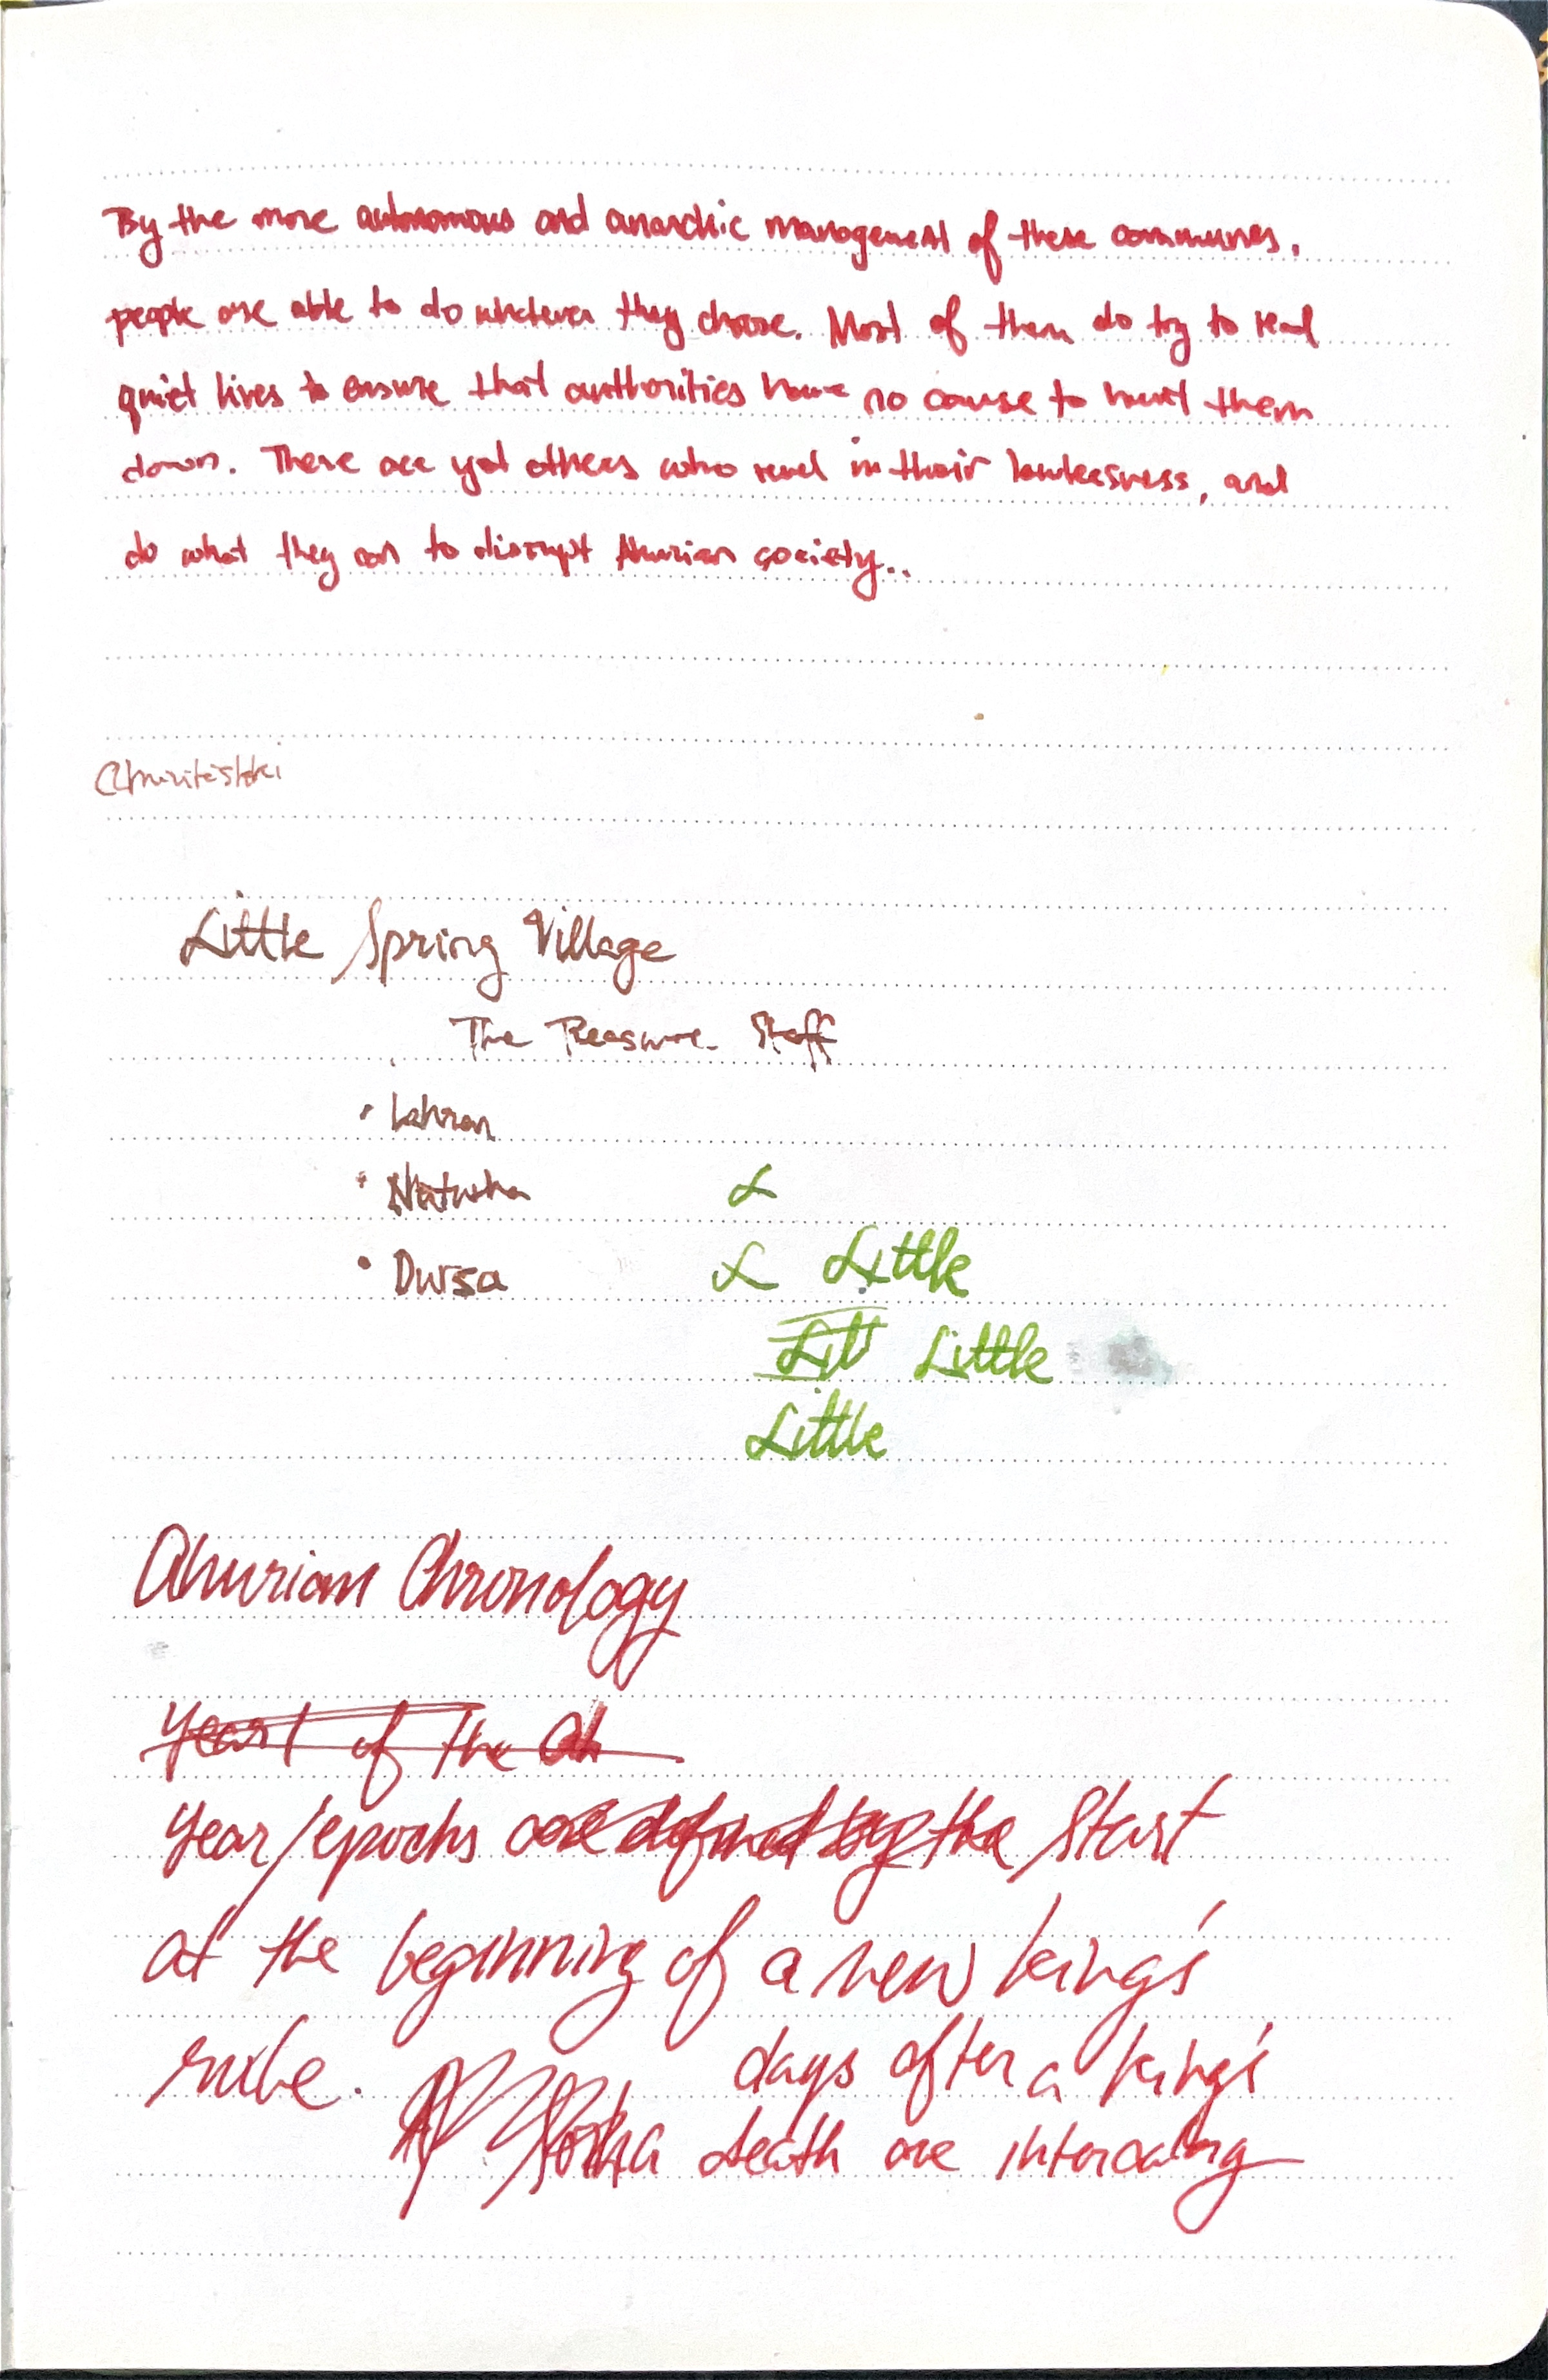 By the more autonomous and anarchic management of these communes,
people are able to do whatever they choose. Most of them do try to lead
quiet lives to ensure that authorities have no cause to hunt them
down. There are yet others who revel in their lawlessness, and
do what they can to disrupt Ahurian society..
Little Spring Village
The Treasure Staff
• Lahran
• Natusha
• Dursa
L
L Little
Lit Little
Little
Ahurian Chronology
Year 1 of the Ah
Year/epochs are defined by the Start
at the beginning of a new king's
rule. days after a king's
death are intercalary